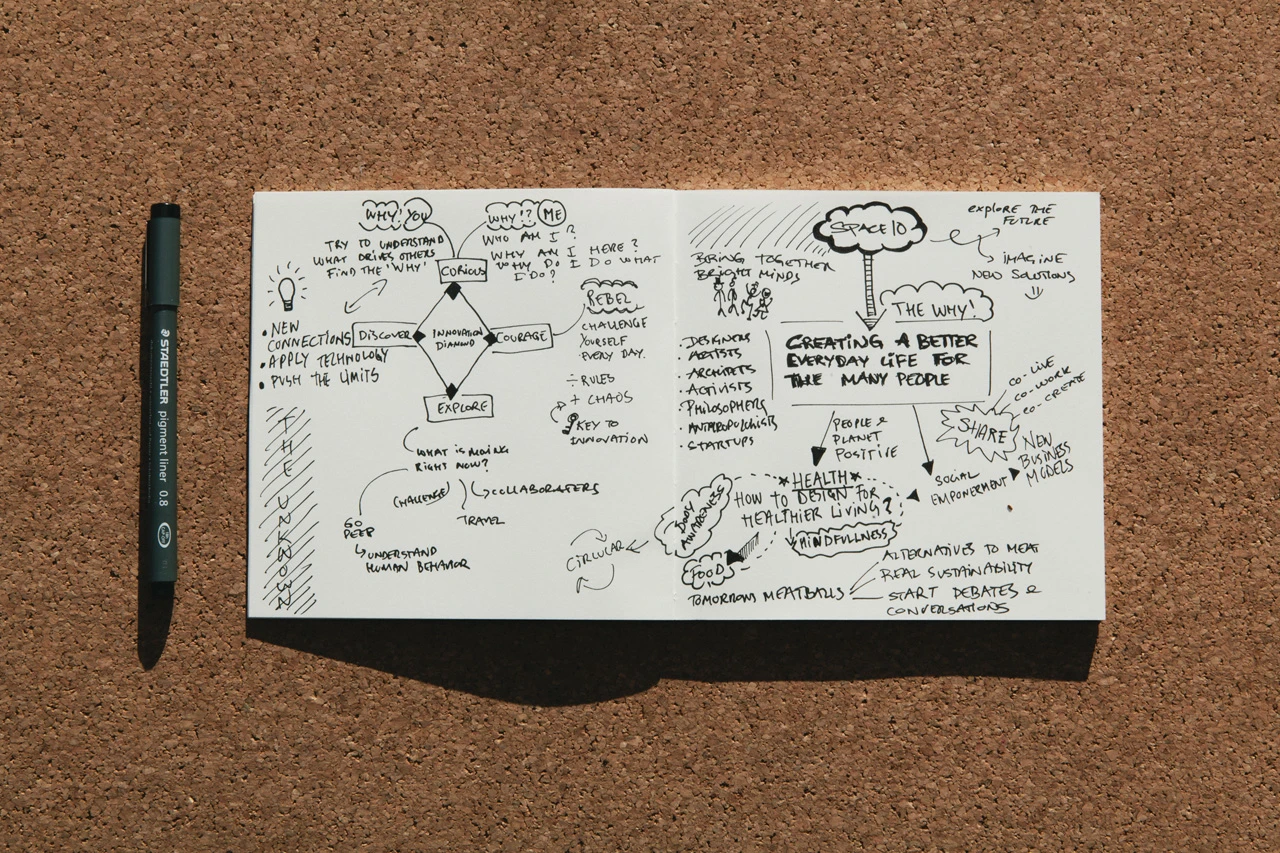 STAEDTLER pigment liner 0.8
WHY! YOU
TRY TO UNDERSTAND
WHAT DRIVES OTHERS
FIND THE 'WHY'
WHY!? ME
WHO AM I?
WHY AM I HERE?
WHY DO I DO WHAT
I DO?
CURIOUS
DISCOVER
INNOVATION
DIAMOND
COURAGE
EXPLORE
• NEW
CONNECTIONS
• APPLY TECHNOLOGY
• PUSH THE LIMITS
REBEL
CHALLENGE
YOURSELF
EVERY DAY.
÷ RULES
+ CHAOS
KEY TO
INNOVATION
THE UNKNOWN
WHAT IS
RIGHT NOW?
CHALLENGE
COLLABORATERS
TRAVEL
GO
DEEP
UNDERSTAND
HUMAN BEHAVIOR
CIRCULAR
SPACE10
explore THE
FUTURE
IMAGINE
NEW SOLUTIONS
BRING TOGETHER
BRIGHT MINDS
THE WHY!
CREATING A BETTER
EVERYDAY LIFE FOR
THE MANY PEOPLE
• DESIGNERS
• ARTISTS
• ARCHITETS
• ACTIVISTS
• PHILOSOPHERS
• STARTUPS
PEOPLE &
PLANET
POSITIVE
CO-LIVE
CO-WORK
CO-CREATE
SHARE
NEW
BUSINESS
MODELS
SOCIAL
EMPOWERMENT
HEALTH
HOW TO DESIGN FOR
HEALTHIER LIVING?
BODY
AWARENESS
MINDFULLNESS
FOOD
TOMORROWS MEATBALLS
ALTERNATIVES TO MEAT
REAL SUSTAINABILITY
START DEBATES &
CONVERSATIONS